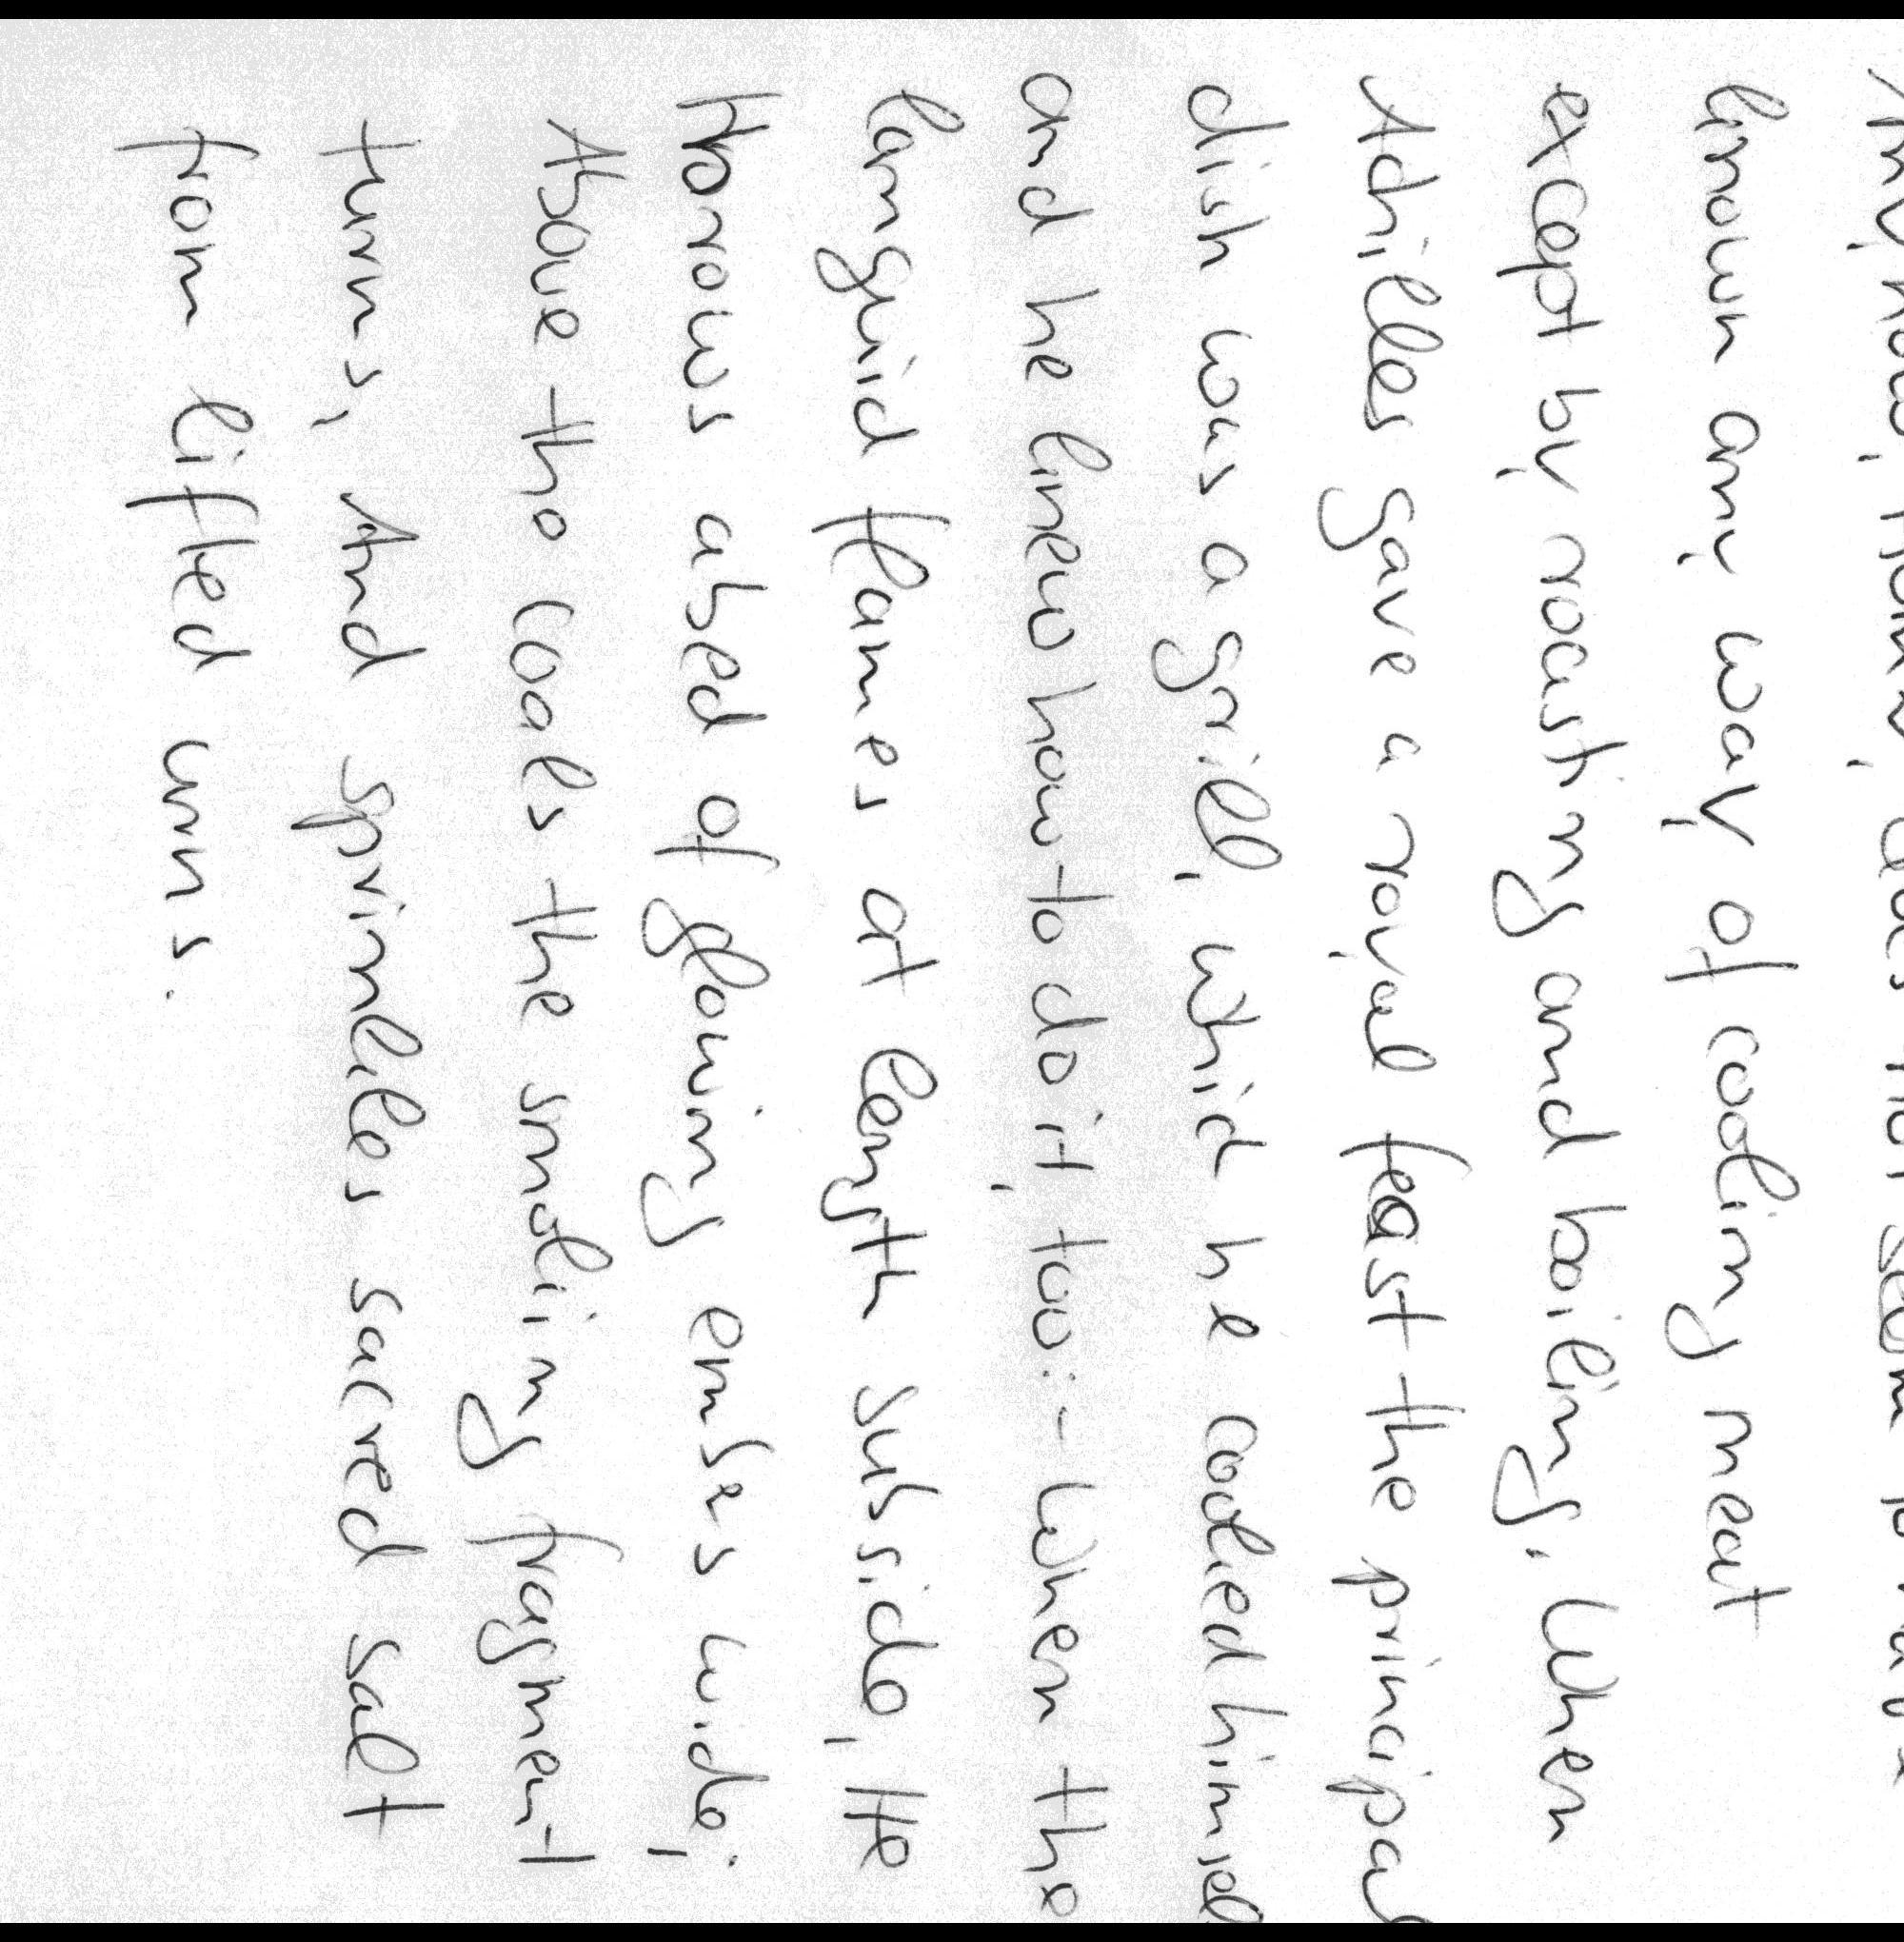 Anyhow, Homer, does not seem to have
known any way of cooking meat
except by roasting and boiling. When
Achilles gave a royal feast the principal
dish was a grill, which he cooked himsel
and he knew how to do it, too: - When the
languid flames at length subside, He
strows a bed of glowing embers wide,
Above the coals the smoking fragment
turns, And sprinkles sacred salt
from lifted urns.